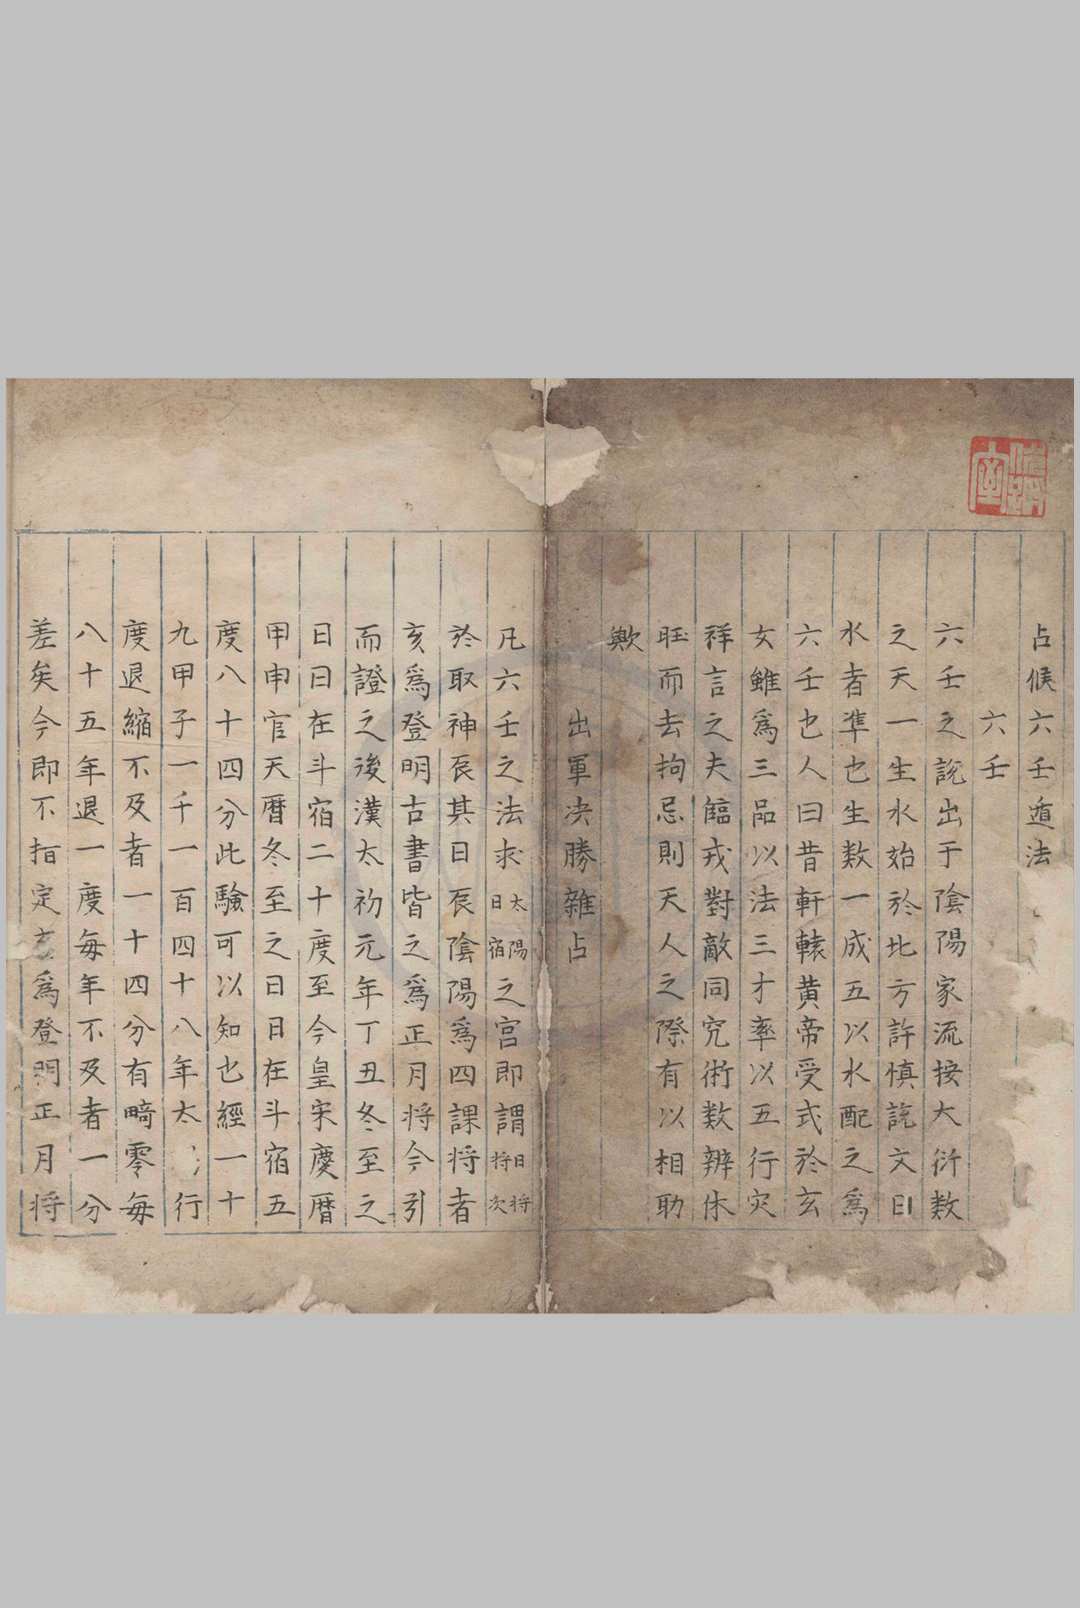 占候六壬遁法
六壬
六壬之說出于陰陽家流按大衍数
之天一生水始於北方許慎說文曰
水者準也生数一成五以水配之爲
六壬也人曰昔軒轅黄帝受式於玄
女雖爲三品以法三才率以五行灾
祥言之夫臨戎對敵同究術数辨休
旺而去拘忌則天人之際有以相助
歟
出軍决勝雜占
凡六壬之法求太陽日宿之宫即謂日将将次
於取神辰其日辰陰陽爲四課将者
亥爲登明古書皆之爲正月将今引
而證之後漢太初元年丁丑冬至之
日日在斗宿二十度至今皇宋慶曆
甲申官天曆冬至之日日在斗宿五
度八十四分此驗可以知也經一十
九甲子一千一百四十八年太行
度退縮不及者一十四分有畸零每
八十五年退一度每年不及者一分
差矣今即不指定爲登明正月将